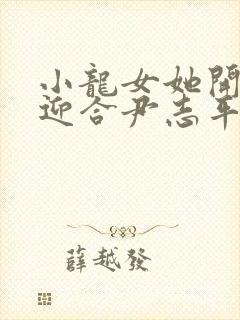 小龍女她開
迎合尹志平
薛越發